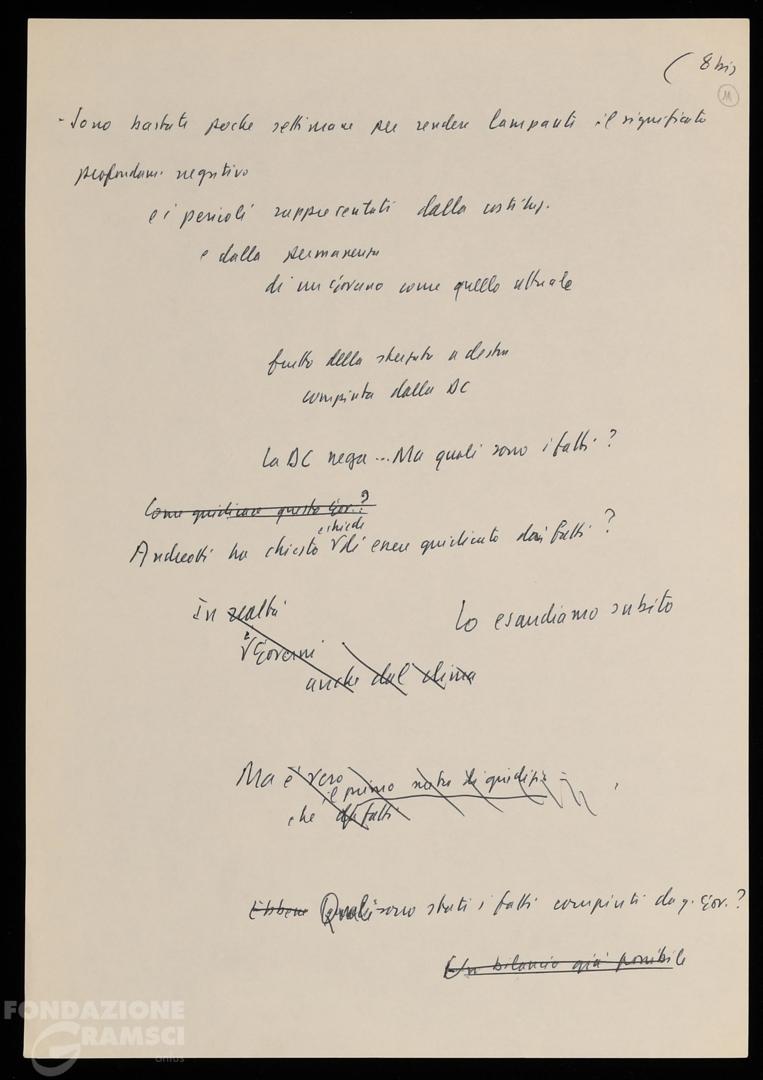 ( 8 bis
11
- Sono bastate poche settimane per rendere lampanti il significato
profondam. negativo
e i pericoli rappresentati dalla costituz.
e dalla permanenza
di un Governo come quello attuale
frutto della sterzata a destra
compiuta dalla DC
La DC nega ... Ma quali sono i fatti ?
Come giudicare questo Gov. ?
e chiede
Andreotti ha chiesto di essere giudicato dai fatti ?
In realtà
Lo esaudiamo subito
i Governi
anche dal clima
Ma è vero
il primo
che dai fatti
Ebbene Quali sono stati i fatti compiuti da q. Gov. ?
Un bilancio già possibile
FONDAZIONE
GRAMSCI
onlus